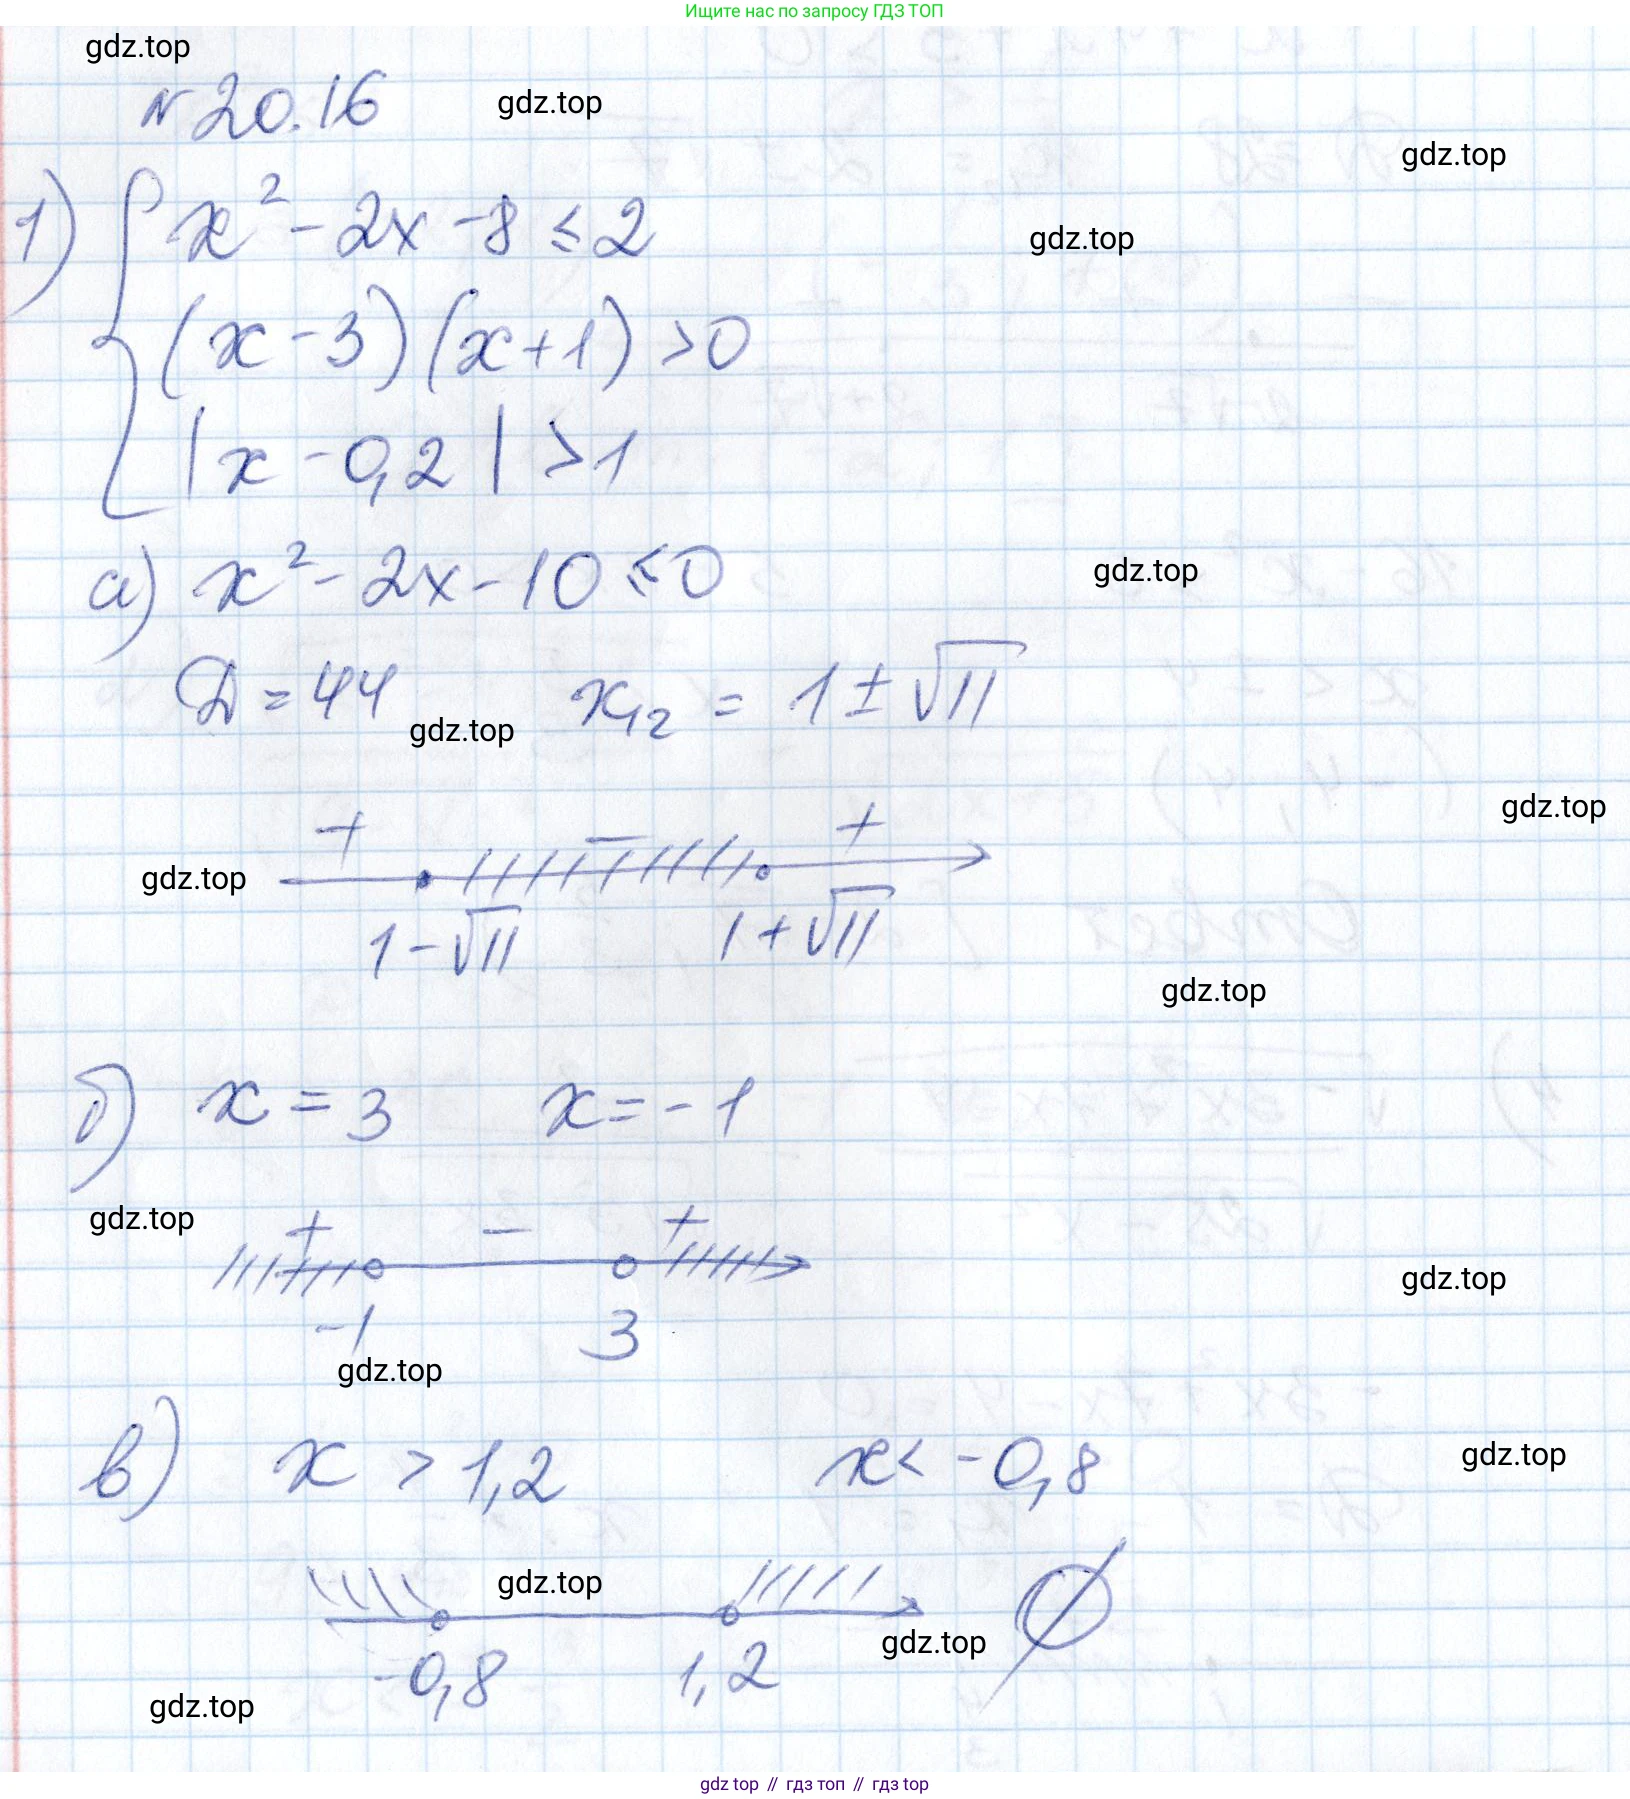 Ищите нас по запросу ГДЗ ТОП
gdz.top
№ 20.16
gdz.top
gdz.top
1) { x² - 2x - 8 ≤ 2
gdz.top
(x - 3)(x + 1) > 0
|x - 0,2| > 1
а) x² - 2x - 10 ≤ 0
gdz.top
D = 44 x₁,₂ = 1 ± √11
gdz.top
gdz.top
+ − +
gdz.top
1 - √11 1 + √11
gdz.top
б) x = 3 x = -1
gdz.top
+ − +
gdz.top
-1 3
gdz.top
в) x > 1,2 x < -0,8
gdz.top
gdz.top
∅
gdz.top
-0,8 1,2
gdz.top
gdz top // гдз топ // гдз top